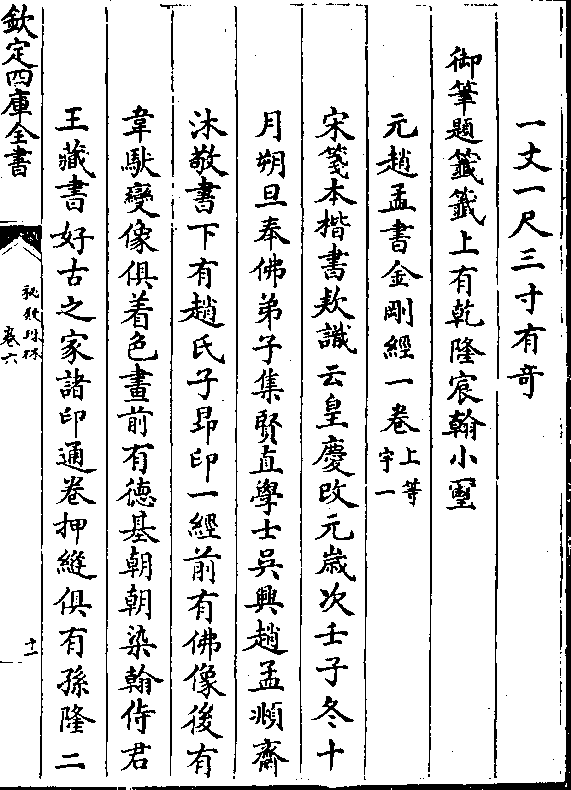 一丈一尺三寸有奇
御筆題籤籤上有乾隆宸翰小璽
元趙孟書金剛經一卷上等宇一
宋箋本楷書欵識云皇慶改元歲次壬子冬十
月朔旦奉佛弟子集賢直學士吳興趙孟頫齋
沐敬書下有趙氏子昂印一經前有佛像後有
韋馱變像俱着色畫前有德基朝朝染翰侍君
王藏書好古之家諸印通卷押縫俱有孫隆二
欽定四庫全書
秘殿珠林
卷六
十一